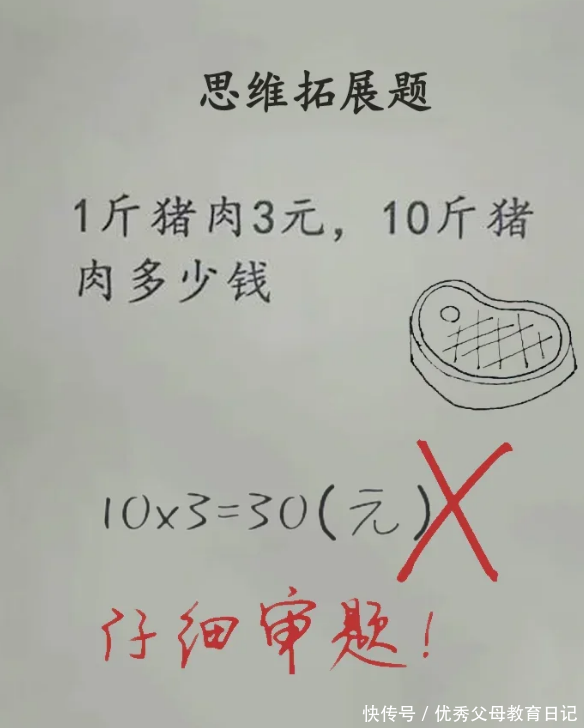 思维拓展题
1斤猪肉3元，10斤猪
肉多少钱
10x3=30(元)
仔细审题！
快传号/优秀父母教育日记